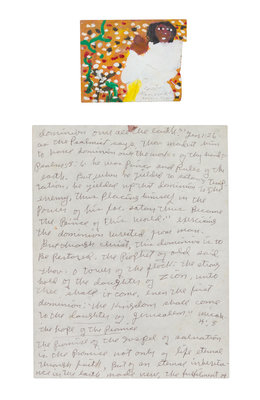 dominion over all the earth" Gen. 1:26
as the Psalmist says, Thou madist him
to have dominion over the works of thy hands
Psalms 8:6. he was Prince and Ruler of the
earth. But when he yielded to satans temp-
tation, he yielded up that dominion to the
enemy, thus placing himself in the
Power of his foe. satan thus became
the Prince of this world."
the dominion wrested from man.
But through Christ, this dominion is to
be Restored. the Prophet of old said
thou O tower of the flock: the strong
hold of the daughter of Zion, unto
thee shall it come, even the first
dominion: the Kingdom shall come
to the daughter of Jerusalem" micah
4:8
the hope of the Promise
the Promise of the Gospel of salvation
is the Promise not only of life eternal
through faith, But of an eternal inherita-
nce in the earth made new, the fulfillment of